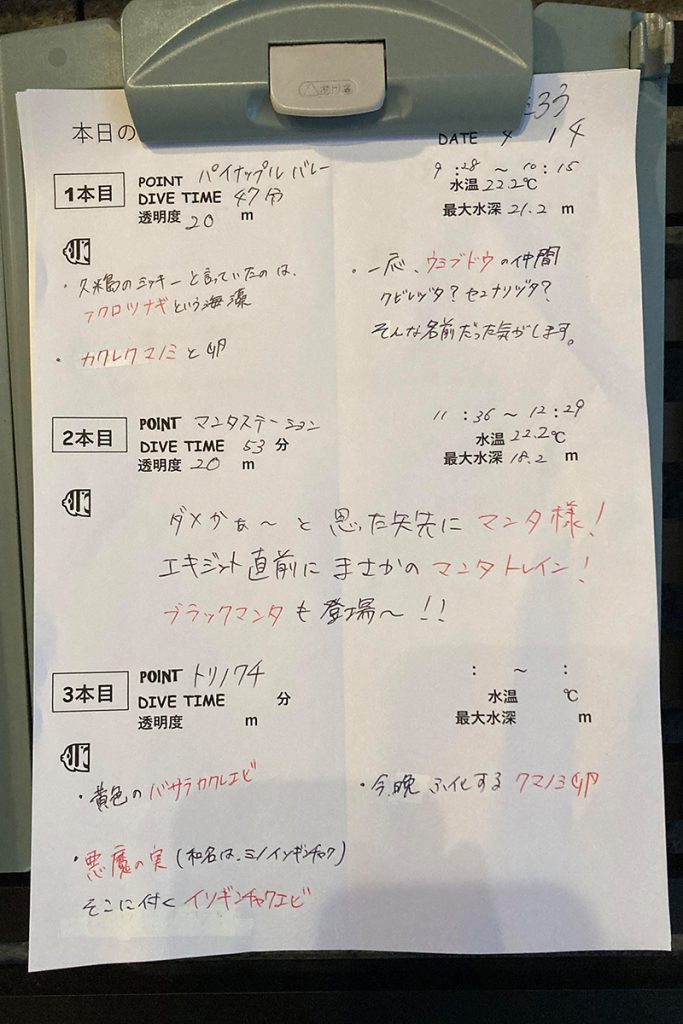 本日の
33
DATE 4 14
1本目
POINT パイナップル バレー
DIVE TIME 47分
透明度 20 m
9:28 ~ 10:15
水温 22.2℃
最大水深 21.2 m
・久米島のミッキーと言っていたのは、
アクロツナギという海藻
・カクレクマノミと卵
・一応、ウミブドウの仲間
クビレヅタ?センナリヅタ?
そんな名前だった気がします。
2本目
POINT マンタステーション
DIVE TIME 53 分
透明度 20 m
11:36 ~ 12:29
水温 22.2℃
最大水深 18.2 m
ダメかぁ~と思った矢先にマンタ様!
エキジット直前にまさかのマンタトレイン!
ブラックマンタも登場~!!
3本目
POINT トリノクチ
DIVE TIME 分
透明度 m
: ~ :
水温 ℃
最大水深 m
・黄色のバサラカクレエビ
・悪魔の実(和名は、ミノイソギンチャク)
そこに付くイソギンチャクエビ
・今晩ふ化するクマノミ卵